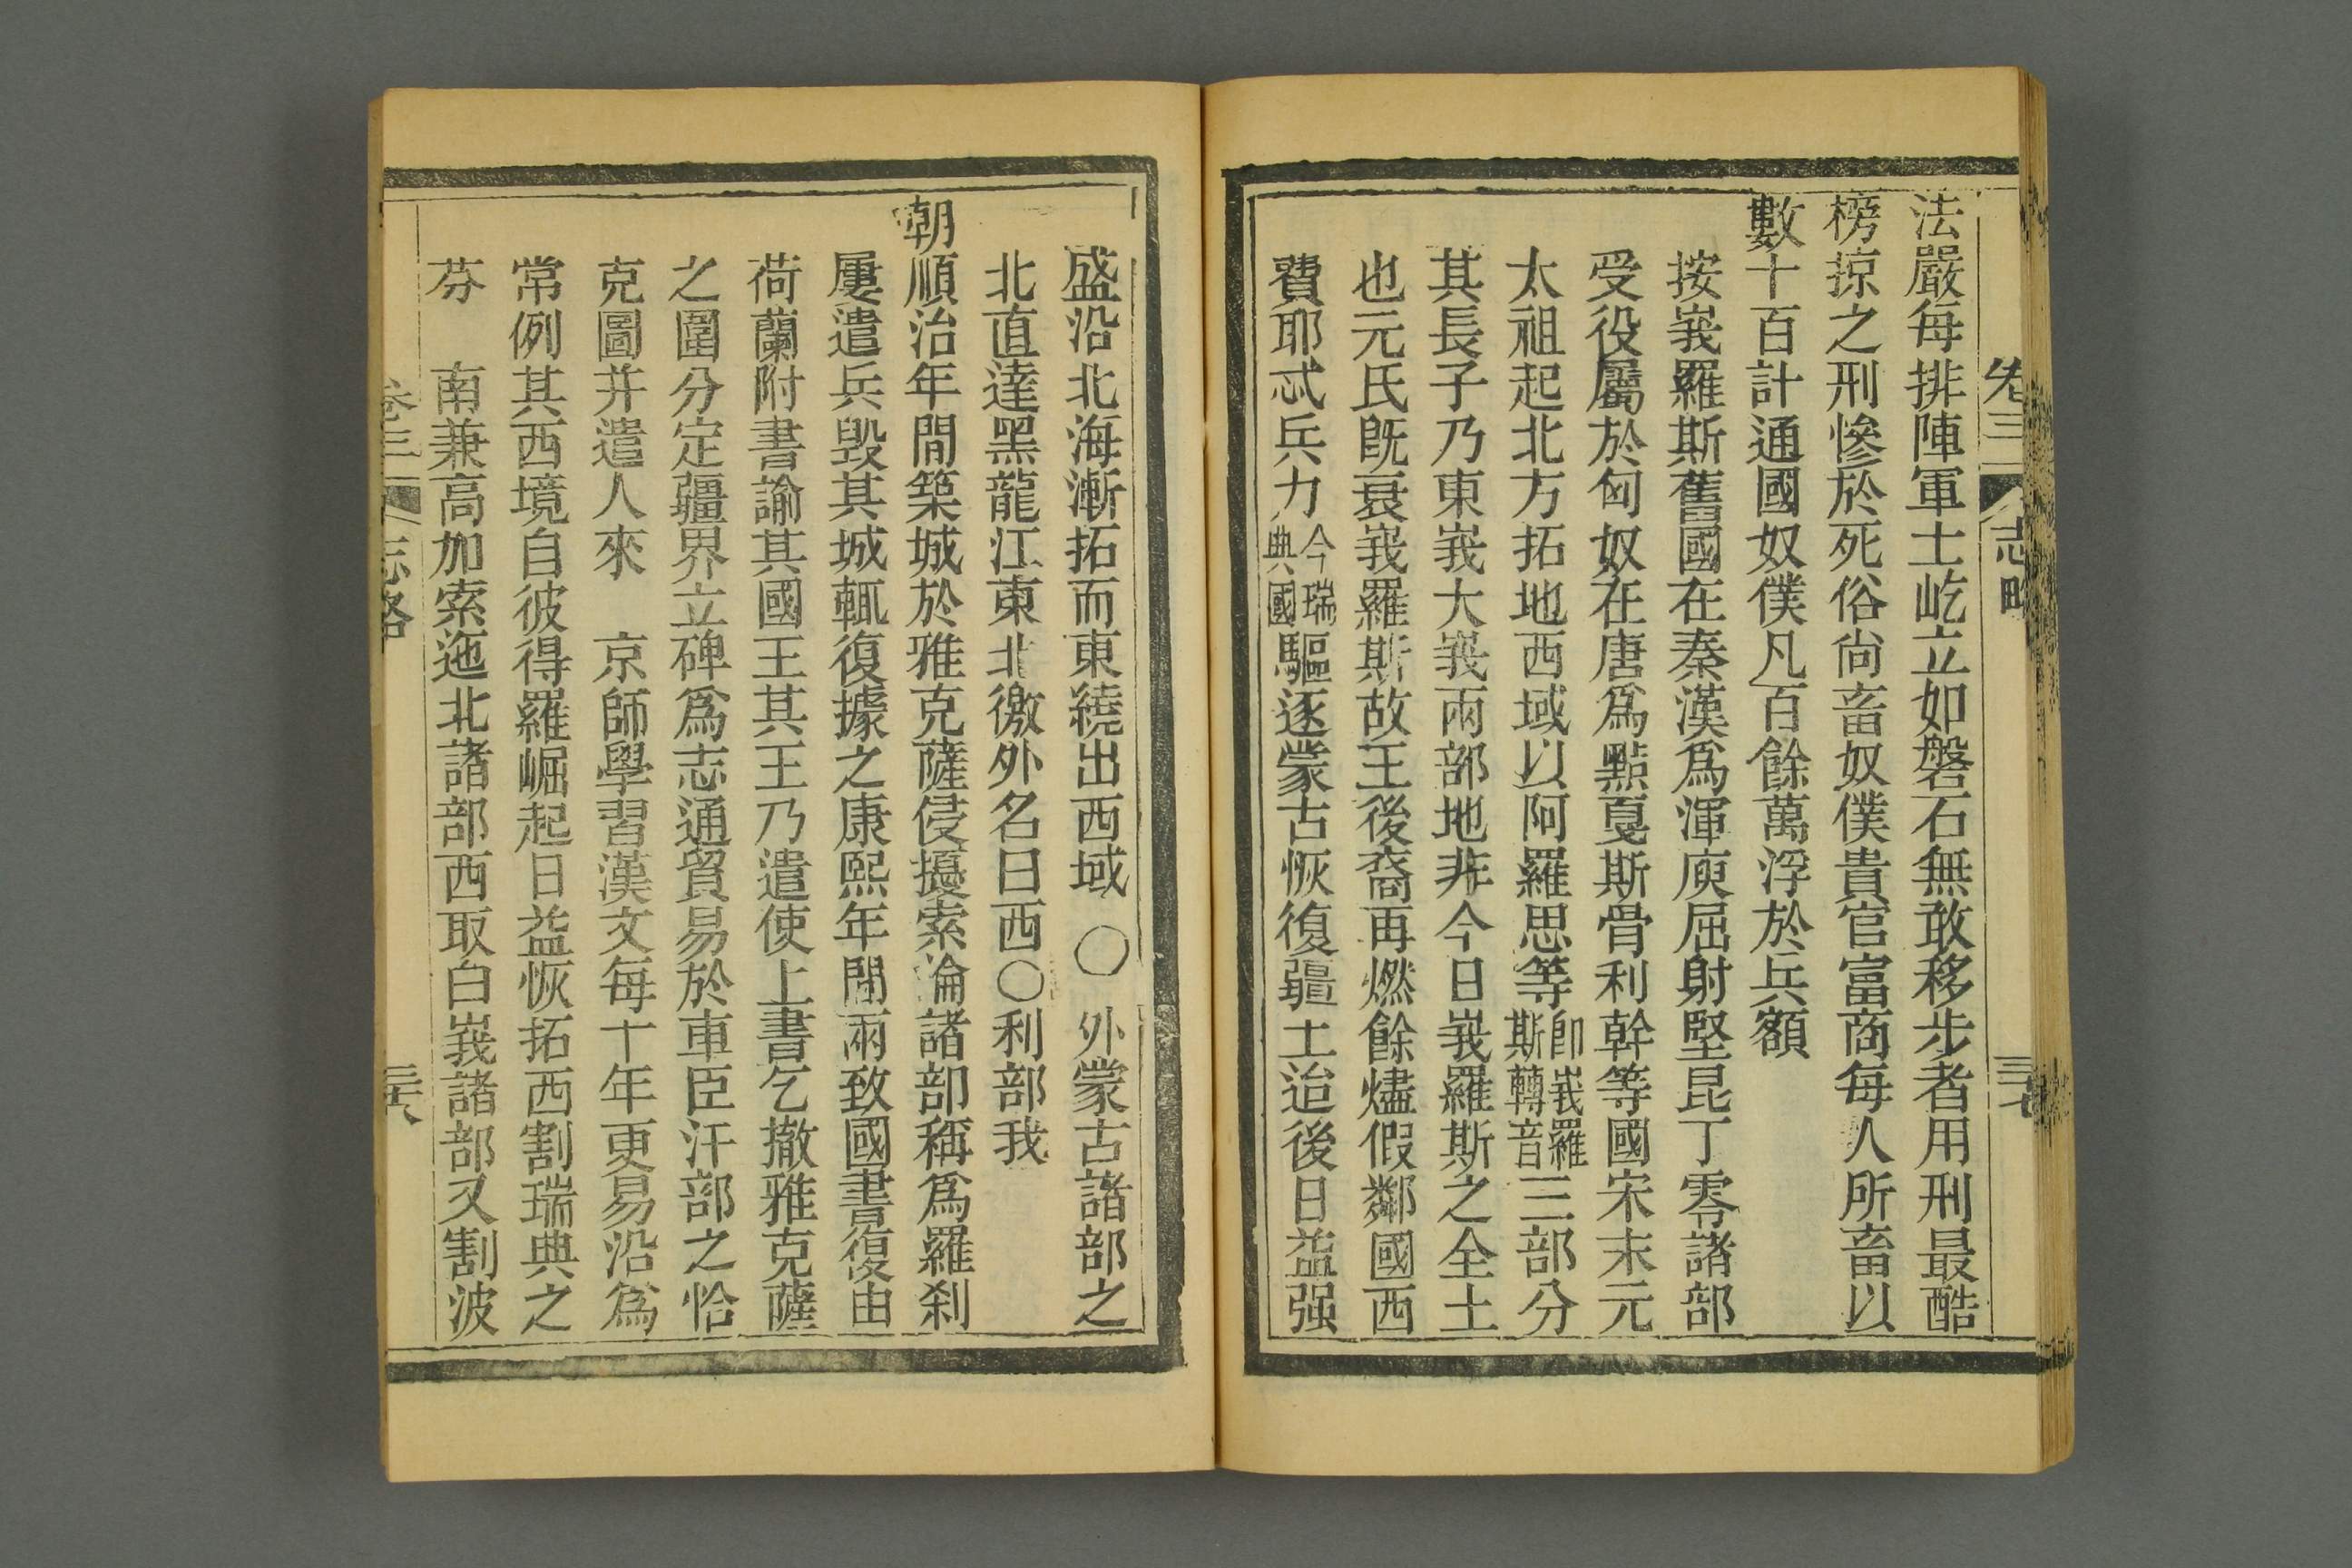 卷三 志略 三七
法嚴每排陣軍士屹立如磐石無敢移步者用刑最酷
榜掠之刑慘於死俗尙畜奴僕貴官富商每人所畜以
數十百計通國奴僕凡百餘萬浮於兵額
按峩羅斯舊國在秦漢爲渾庾屈射堅昆丁零諸部
受役屬於匈奴在唐爲黠戛斯骨利幹等國宋末元
太祖起北方拓地西域以阿羅思等卽峩羅斯轉音三部分
其長子乃東峩大峩兩部地非今日峩羅斯之全土
也元氏旣衰峩羅斯故王後裔再燃餘燼假鄰國西
費耶忒兵力今瑞典國驅逐蒙古恢復疆土迨後日益强
盛沿北海漸拓而東繞出西域〇外蒙古諸部之
北直達黑龍江東北徼外名曰西〇利部我
朝順治年間築城於雅克薩侵擾索倫諸部稱爲羅刹
屢遣兵毀其城輒復據之康熙年間兩致國書復由
荷蘭附書諭其國王其王乃遣使上書乞撤雅克薩
之圍分定疆界立碑爲志通貿易於車臣汗部之恰
克圖并遣人來 京師學習漢文每十年更易沿爲
常例其西境自彼得羅崛起日益恢拓西割瑞典之
芬 南兼高加索迤北諸部西取白峩諸部又割波
卷三 志略 三八